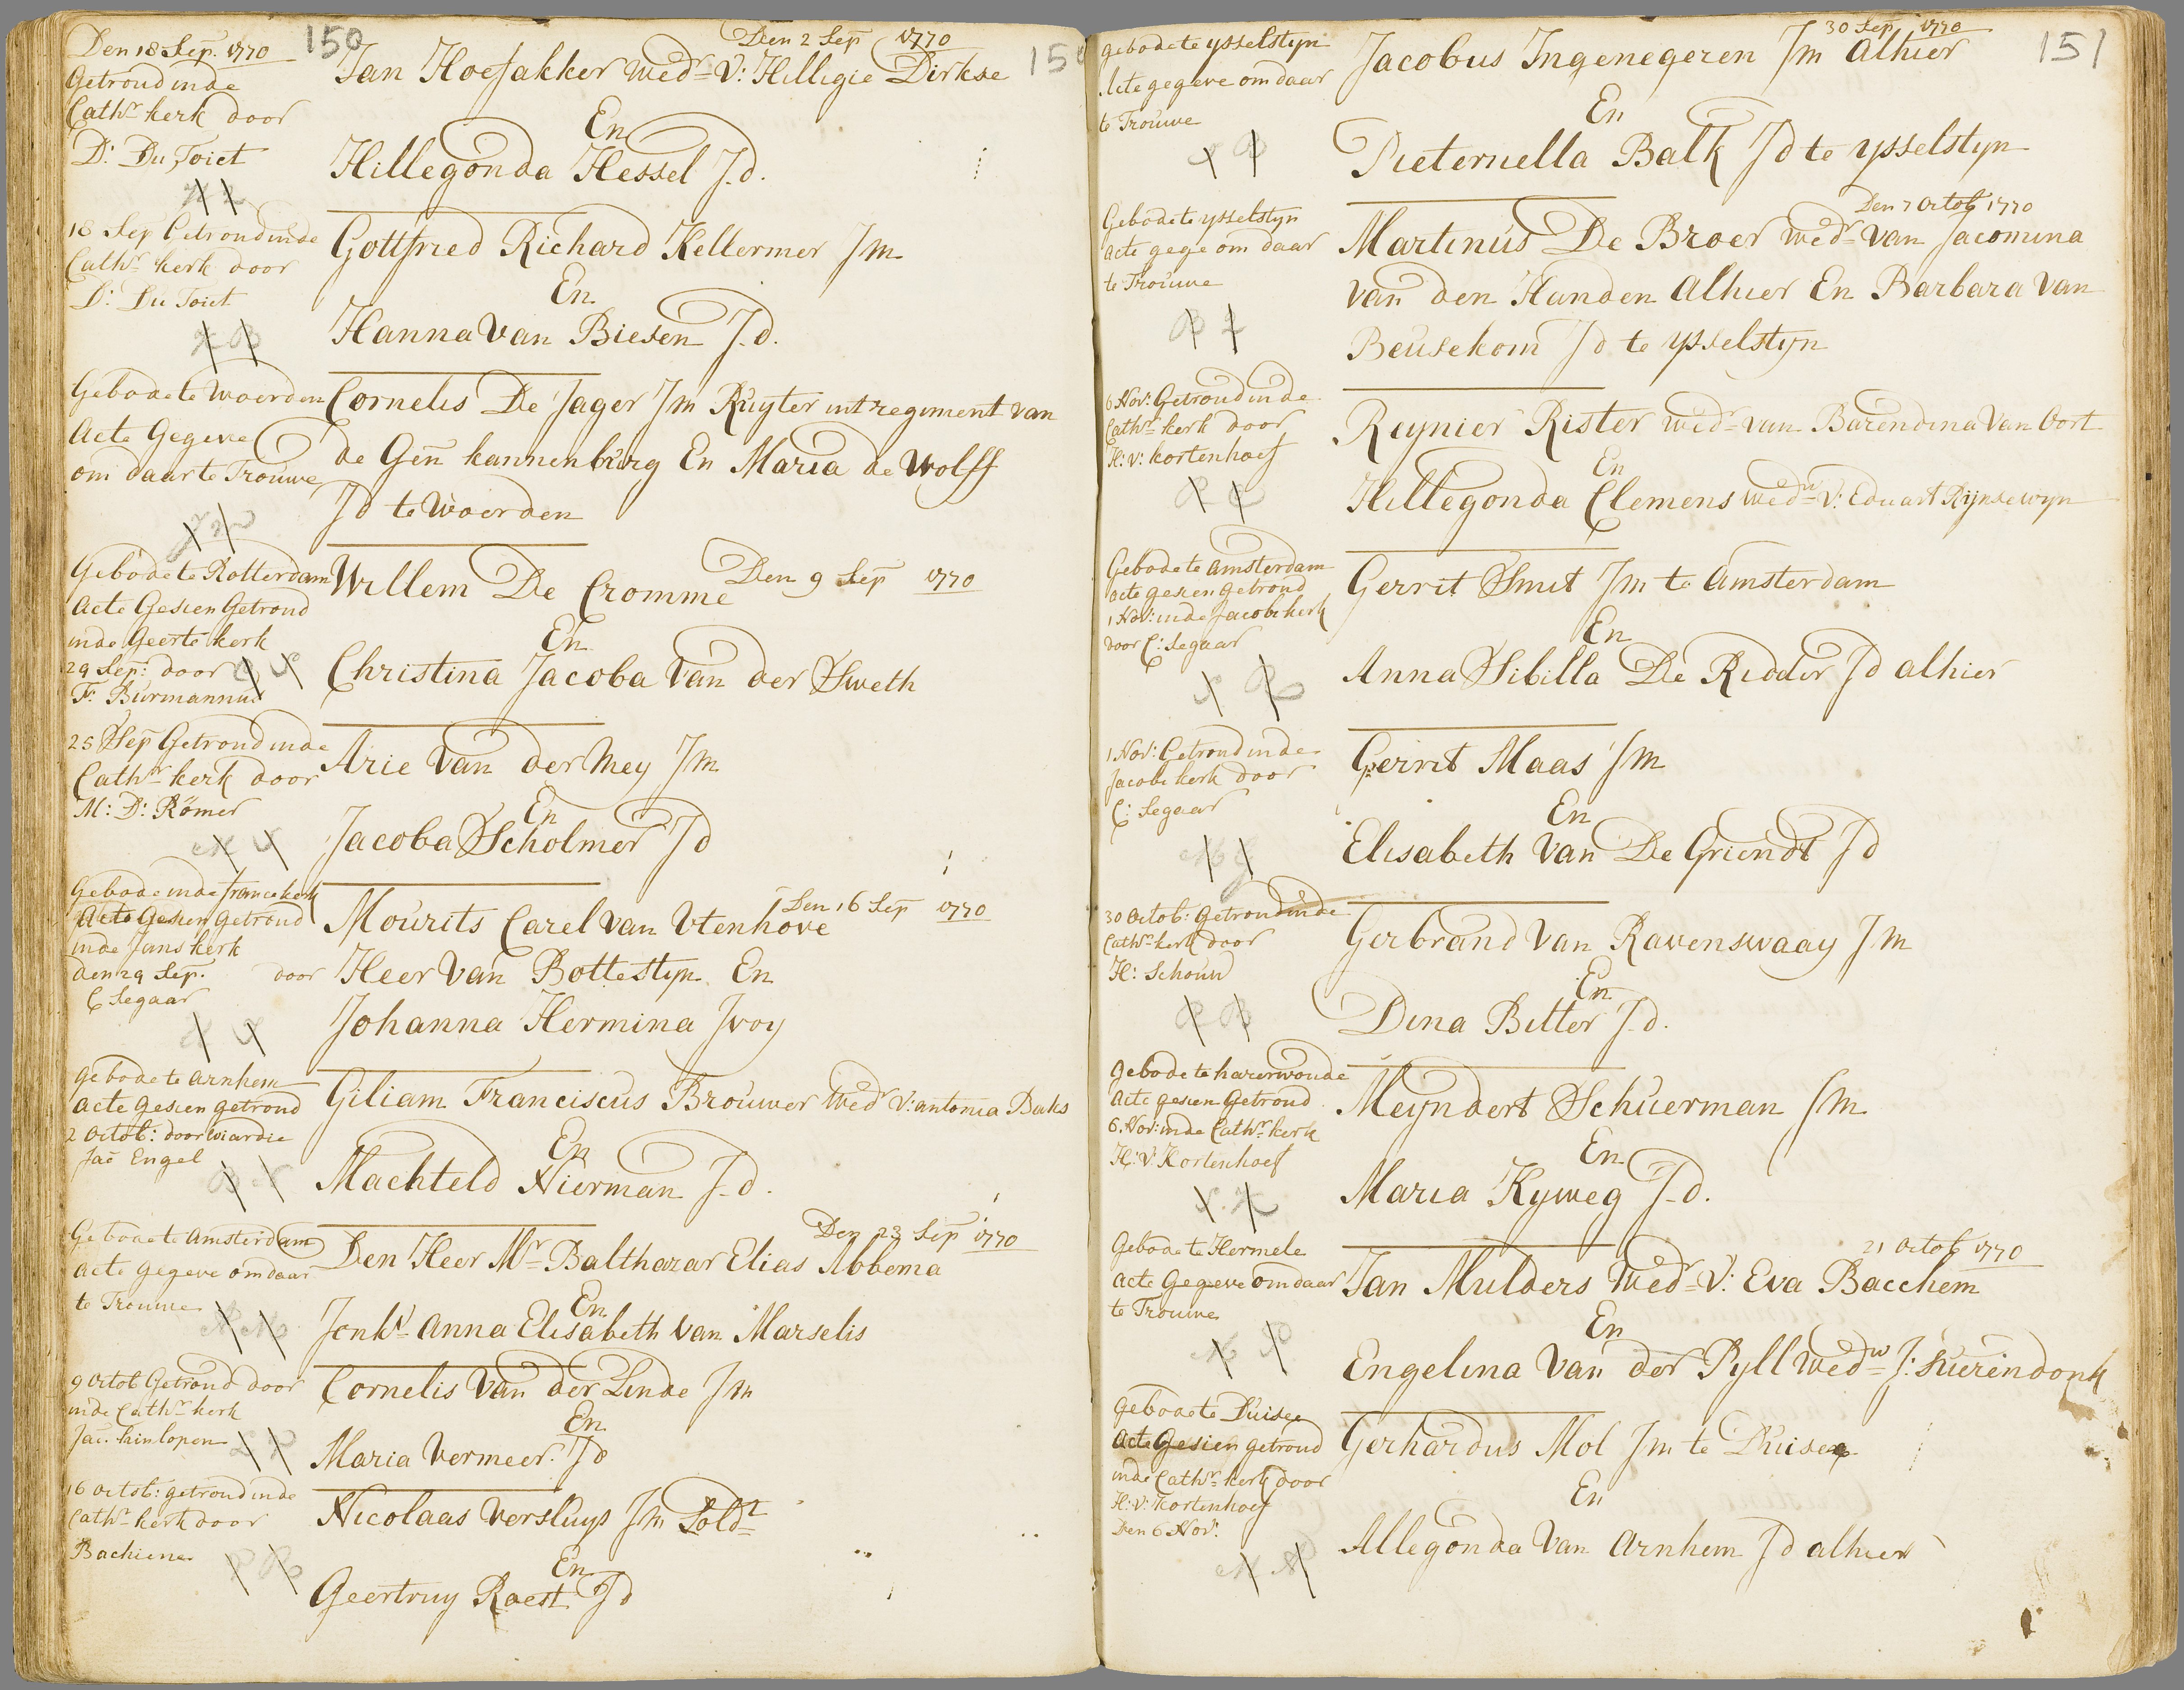 150
Den 2 Sep 1770
Den 18 Sep. 1770
Getroud inde
Cathr kerk door
D: Du Toict
Jan Hoefakker Wedr V: Hilligie Dirkse
En
Hillegonda Hessel J.d.
18 Sep Getroud inde
Cathr kerk door
D: Du Toict
Gottfried Richard Kellermer Jm
En
Hanna Van Biesen J.d.
Gebode te Woerden
Acte Gegeve
om daar te Trouwe
Cornelis De Jager Jm Ruyter int regiment van
de Gen kannenburg En Maria de Wolff
Jd te Woerden
Den 9 Sep 1770
Gebode te Rotterdam
Acte Gesien Getroud
inde Geerte kerk
29 Sep: door
F: Burmannus
Willem De Cromme
En
Christina Jacoba Van der Sweth
25 Sep Getroud inde
Cathr kerk door
M: D: Römer
Arie Van der Mey Jm
En
Jacoba Scholmer Jd
Den 16 Sep 1770
Gebode inde franse kerk
Acte Gesien Getroud
inde Jans kerk
den 29 Sep. door
C Segaar
Mourits Carel van Utenhove
Heer Van Bottestyn En
Johanna Hermina Jvoy
gebode te Arnhem
Acte gesien getroud
2 Octob: door Wiardie
Jac Engel
Giliam Franciscus Brouwer Wedr V: antonia Baks
En
Machteld Nierman J.d.
Den 23 Sep 1770
Gebode te Amsterdam
Acte gegeve om daar
te Trouwe
Den Heer Mr Balthazar Elias Abbema
En
Jonkr Anna Elisabeth van Marselis
9 Octob Getroud door
inde Cathr kerk
Jac. hinlopen
Cornelis Van der Linde Jm
En
Maria Vermeer. Jd
16 Octob: getroud inde
Cathr kerk door
Bachiene
Nicolaas Versluys Jm Soldt
En
Geertruy Raest Jd
151
30 Sep 1770
gebode te ysselstyn
Acte gegeve om daar
te Trouwe
Jacobus Ingenegeren Jm Alhier
En
Pieternella Balk Jd te ysselstyn
Den 7 Octob 1770
Gebode te ysselstyn
acte gege om daar
te Trouwe
Martinus De Broer Wedr van Jacomina
van den Handen Alhier En Barbara Van
Beusekom Jd te ysselstyn
6 Nov: Getroud inde
Cathr kerk door
H: V: kortenhoef
Reynier Rister Wedr van Barendina Van Oort
En
Hillegonda Clemens Wedw V: Eduart Rijnsewyn
Gebode te Amsterdam
acte gesien getroud
1 Nov: inde Jacobi kerk
door C: Segaar
Gerrit Smit Jm te Amsterdam
En
Anna Sibilla De Ridder Jd alhier
1 Nov: Getroud inde
Jacobi kerk door
C: Segaar
Gerrit Maas Jm
En
Elisabeth Van De Griendt Jd
30 Octob: Getroud inde
Cathr kerk door
H: Schouw
Gerbrand Van Ravenswaay Jm
En
Dina Bitter J.d.
Gebode te hazerwoude
Acte gesien Getroud
6 Nov: inde Cathr kerk
H: V: Kortenhoef
Meyndert Schuerman Jm
En
Maria Kyweg J.d.
21 Octob 1770
Gebode te Hermele
Acte Gegeve om daar
te Trouwe
Jan Mulders Wedr V: Eva Bacchem
En
Engelina Van der Pyll Wedw J: Suerendonk
Gebode te Duisee
Acte Gesien getroud
inde Cathr kerk door
H: V: Kortenhoef
Den 6 Nov:
Gerhardus Mol Jm te Duisee
En
Allegonda Van Arnhem Jd alhier